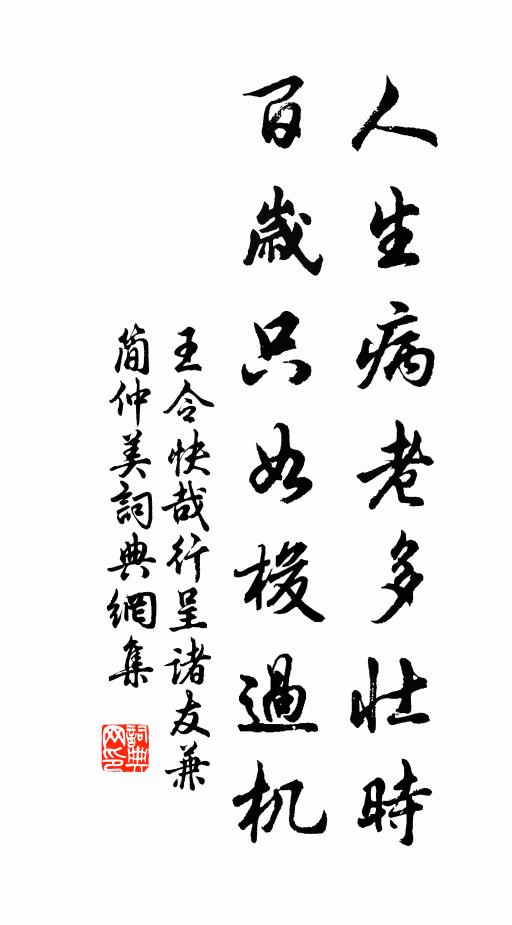 人生病老多壮時
百歲只如梭過机
王令快哉行呈諸友兼
简仲美詞典網集
詞典网印